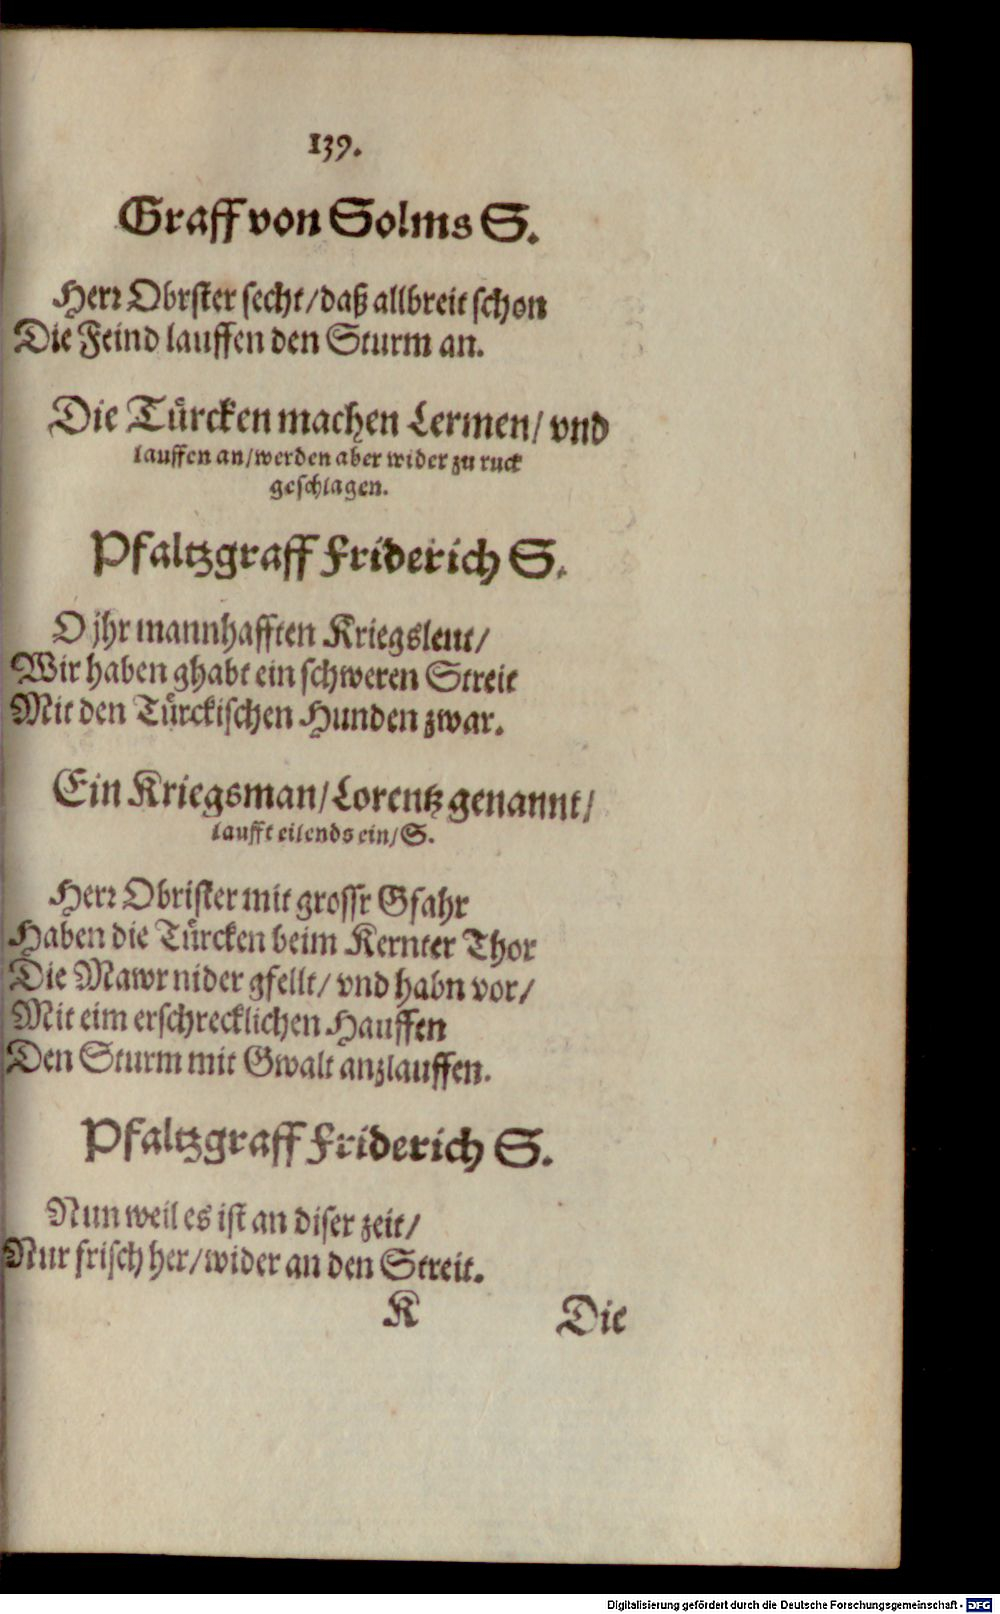 139.
Graff von Solms S.
Herr Obrster secht/daß allbreit schon
Die Feind lauffen den Sturm an.
Die Tuͤrcken machen Lermen/ vnd
lauffen an/werden aber wider zu ruck
geschlagen.
Pfaltzgraff Friderich S.
O jhr mannhafften Kriegsleut/
Wir haben ghabt ein schweren Streit
Mit den Tuͤrckischen Hunden zwar.
Ein Kriegsman/Lorentz genannt/
laufft eilends ein/S.
Herr Obrister mit grossr Gfahr
Haben die Tuͤrcken beim Kernter Thor
Die Mawr nider gfellt/ vnd habn vor/
Mit eim erschrecklichen Hauffen
Den Sturm mit Gwalt anzlauffen.
Pfaltzgraff Friderich S.
Nun weil es ist an diser zeit/
Nur frisch her/wider an den Streit.
K Die
Digitalisierung gefördert durch die Deutsche Forschungsgemeinschaft - DFG